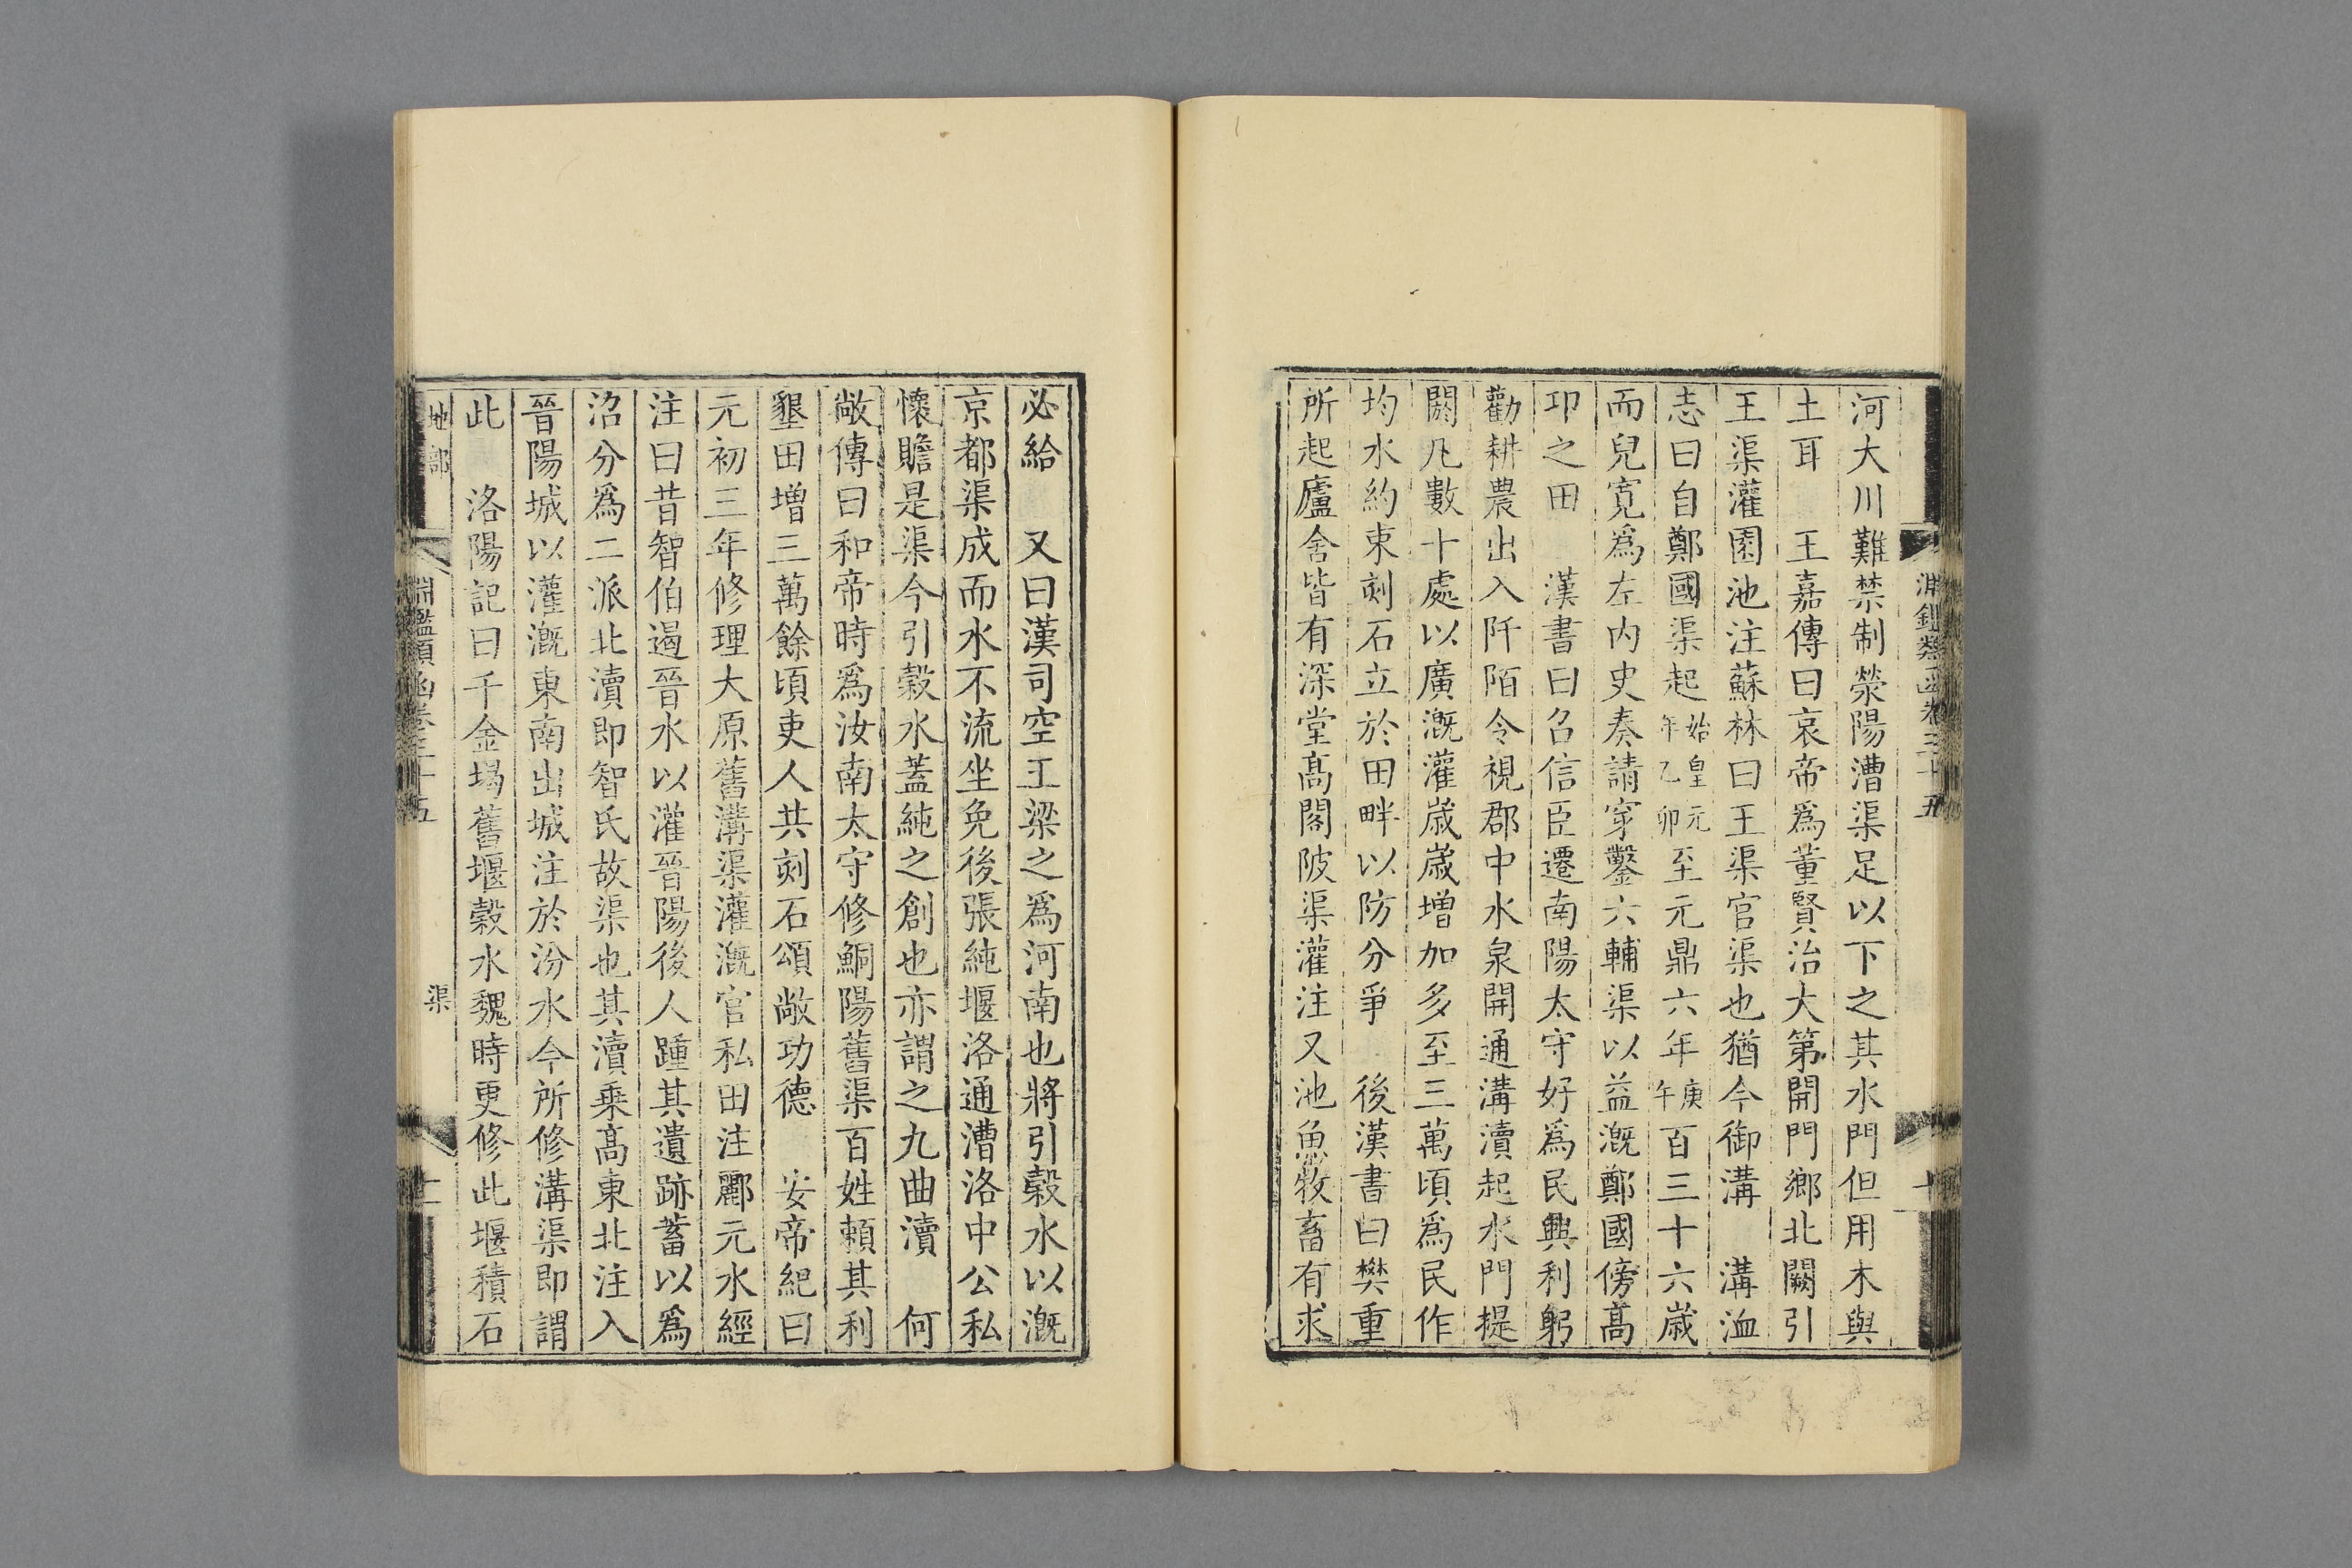 淵鑑類函卷三十五
十
河大川難禁制滎陽漕渠足以下之其水門但用木與
土耳　王嘉傳曰哀帝爲董賢治大第開門鄉北闕引
王渠灌園池注蘇林曰王渠官渠也猶今御溝　溝洫
志曰自鄭國渠起始皇元年乙卯至元鼎六年庚午百三十六歲
而兒寬爲左內史奏請穿鑿六輔渠以益漑鄭國傍高
卭之田　漢書曰召信臣遷南陽太守好爲民興利躬
勸耕農出入阡陌令視郡中水泉開通溝瀆起水門提
閼凡數十處以廣漑灌歲歲增加多至三萬頃爲民作
均水約束刻石立於田畔以防分爭　後漢書曰樊重
所起廬舍皆有深堂高閣陂渠灌注又池魚牧畜有求
必給　又曰漢司空王梁之爲河南也將引穀水以漑
京都渠成而水不流坐免後張純堰洛通漕洛中公私
懷贍是渠今引穀水蓋純之創也亦謂之九曲瀆　何
敞傳曰和帝時爲汝南太守修鮦陽舊渠百姓賴其利
墾田增三萬餘頃吏人共刻石頌敞功德　安帝紀曰
元初三年修理大原舊溝渠灌漑官私田注酈元水經
注曰昔智伯遏晉水以灌晉陽後人踵其遺跡蓄以爲
沼分爲二派北瀆即智氏故渠也其瀆乗高東北注入
晉陽城以灌漑東南出城注於汾水今所修溝渠即謂
此　洛陽記曰千金堨舊堰穀水魏時更修此堰積石
地部
淵鑑類函卷三十五
渠